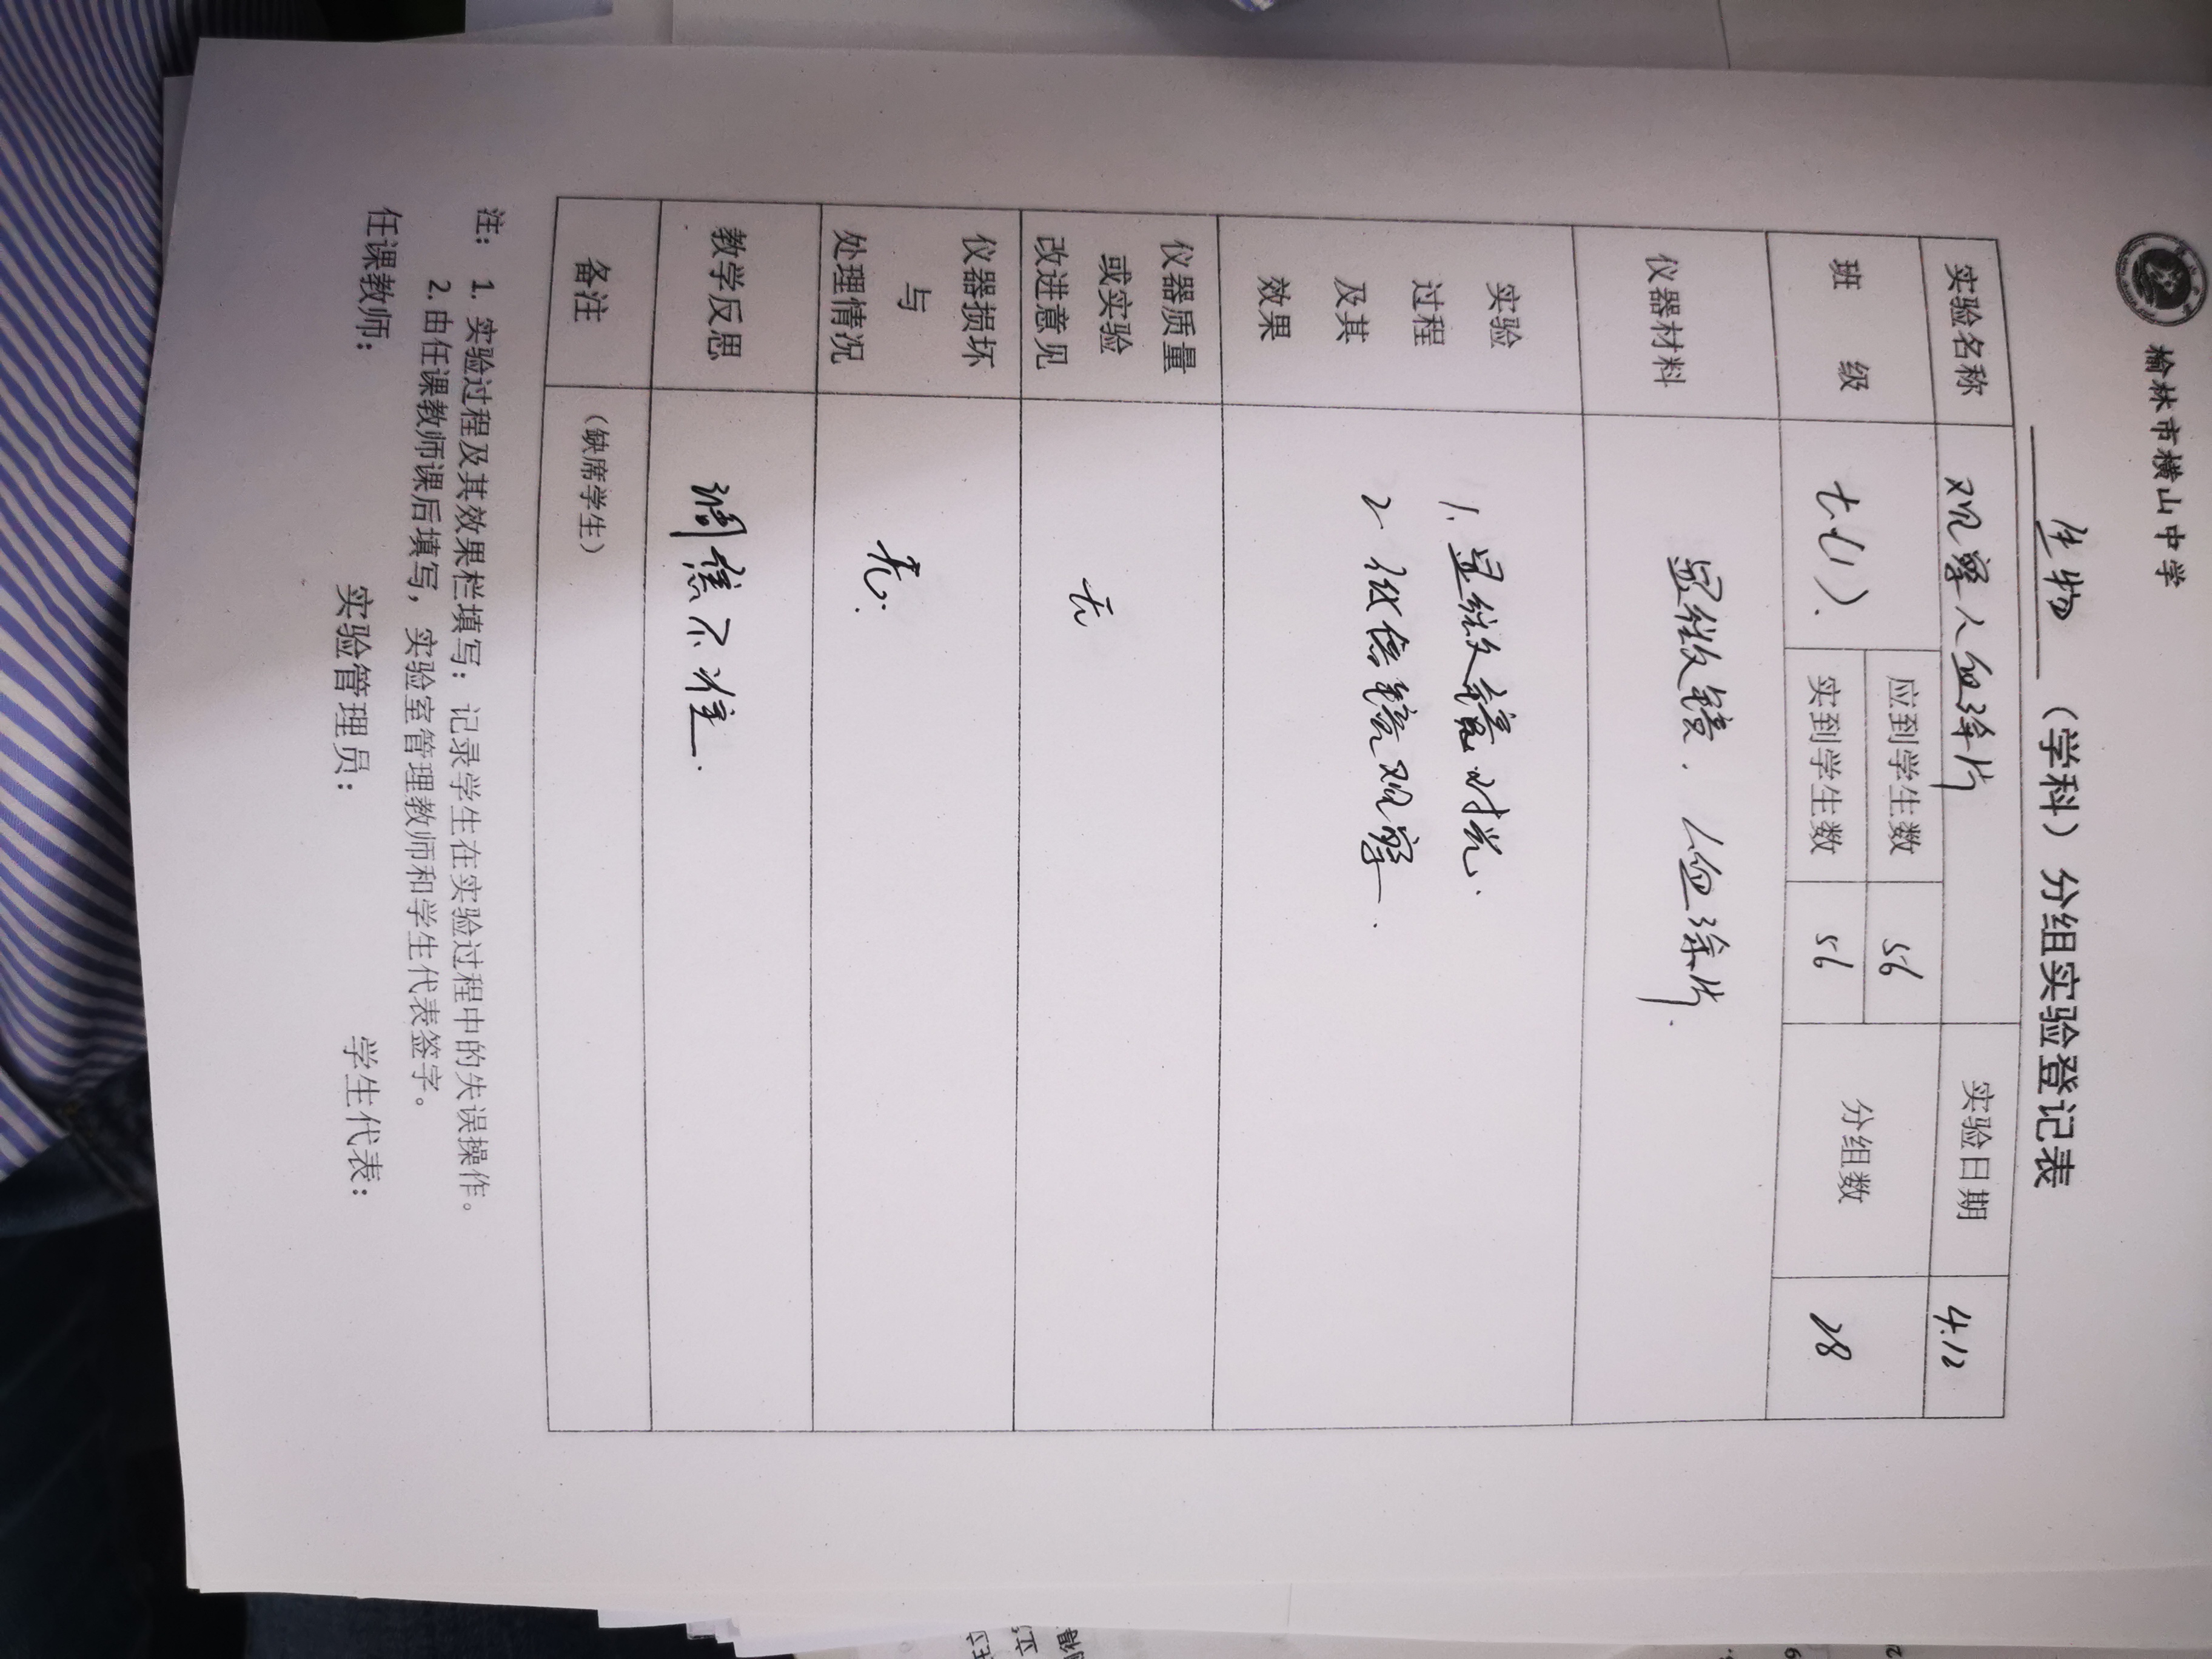 榆林市横山中学
生物 （学科）分组实验登记表
实验名称 观察人血涂片 实验日期 4.12
班 级 七（1）、 应到学生数 56 分组数 28
实到学生数 56
仪器材料 显微镜．人血涂片．
实验
过程
及其
效果
1.显微镜对光．
2. 低倍镜观察．
仪器质量
或实验
改进意见
无
仪器损坏
与
处理情况
教学反思 调焦不准．
备注 （缺席学生）
注： 1. 实验过程及其效果栏填写：记录学生在实验过程中的失误操作。
2. 由任课教师课后填写，实验室管理教师和学生代表签字。
任课教师： 实验管理员： 学生代表：